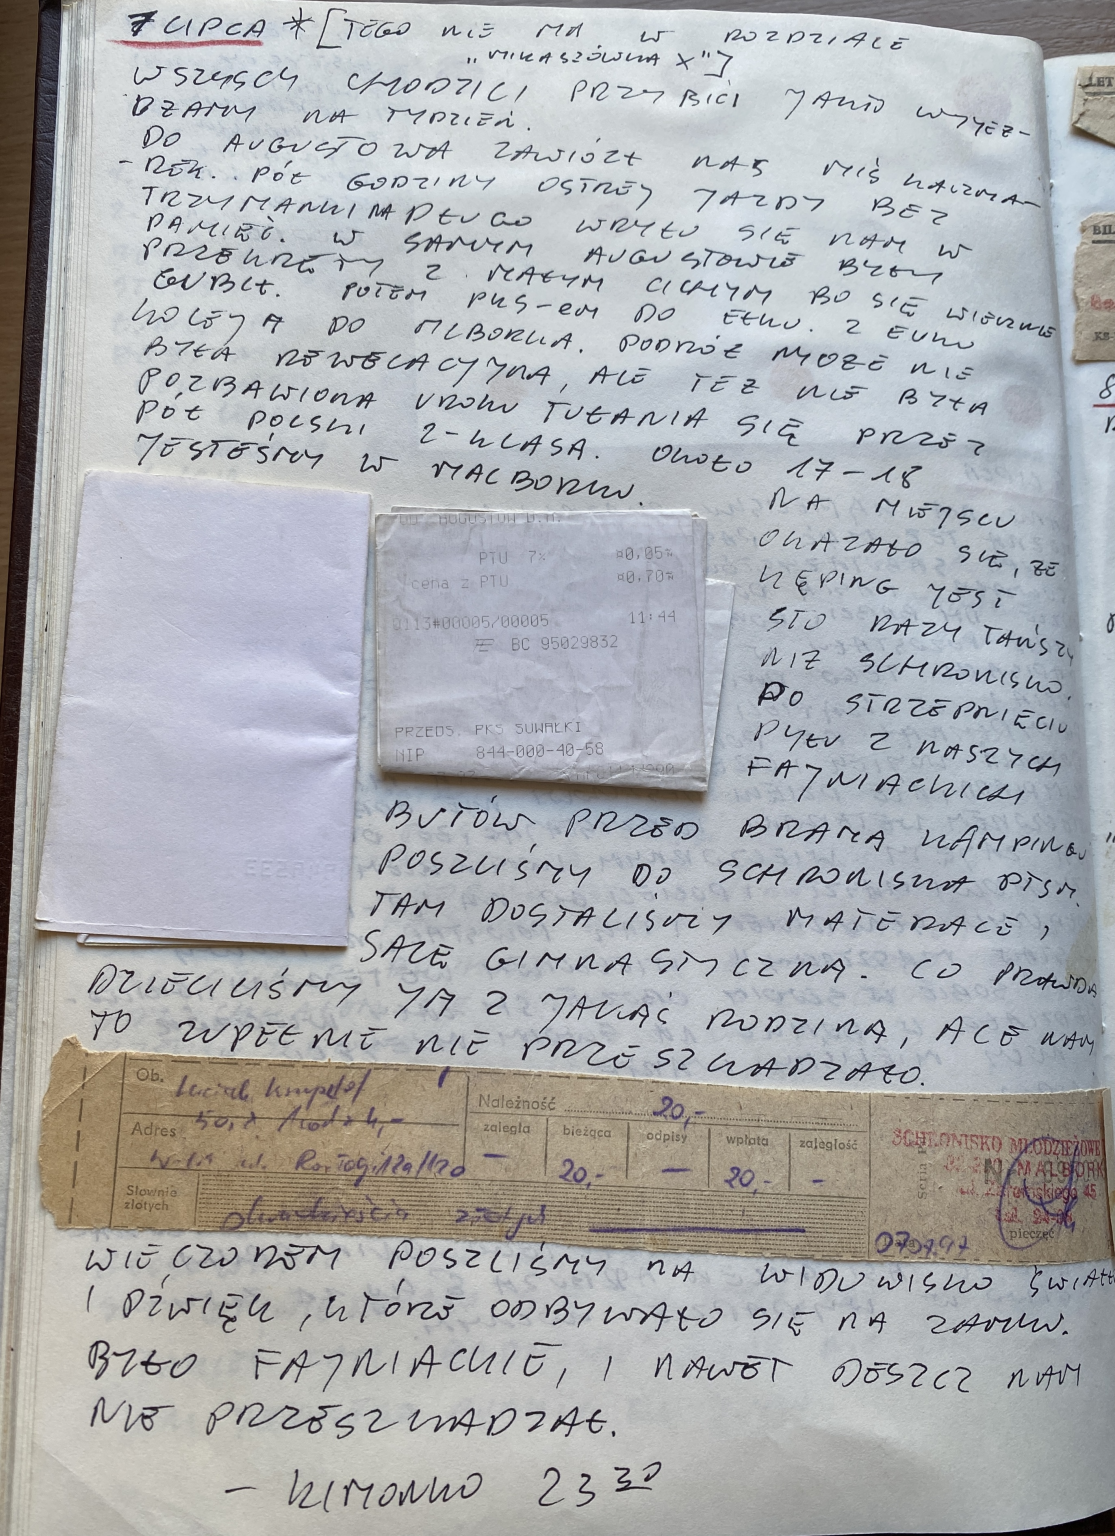 7 LIPCA * [TEGO NIE MA W ROZDZIALE
"MIKASZÓWKA X"]
WSZYSCY CHODZILI PRZYBICI JAKO WYJEŻ-
DŻAMY NA TYDZIEŃ.
DO AUGUSTOWA ZAWIÓZŁ NAS MIŚ KACZMA-
-REK. PÓŁ GODZINY OSTREJ JAZDY BEZ
TRZYMANKI NA DŁUGO WRYŁO SIĘ NAM W
PAMIĘĆ. W SAMYM AUGUSTOWIE BYŁY
PRZEKRĘTY Z MAŁYM CICHYM BO SIĘ WIECZNIE
GUBIŁ. POTEM PKS-em DO EŁKU. Z EŁKU
KOLEJĄ DO MLBORKA. PODRÓŻ MOŻE NIE
BYŁA REWELACYJNA, ALE TEŻ NIE BYŁA
POZBAWIONA UROKU TUŁANIA SIĘ PRZEZ
PÓŁ POLSKI 2-KLASĄ. OKOŁO 17-18
JESTEŚMY W MALBORKU.
NA MIEJSCU
OKAZAŁO SIĘ, ŻE
KĘPING JEST
STO RAZY TAŃSZY
NIŻ SCHRONISKO.
PO STRZEPNIĘCIU
PYŁU Z NASZYCH
FAJNIACKICH
BUTÓW PRZED BRAMĄ KAMPINGU
POSZLIŚMY DO SCHRONISKA PTSM.
TAM DOSTALIŚMY MATERACE,
SALĘ GIMNASTYCZNĄ. CO PRAWDA
DZIELILIŚMY JĄ Z JAKĄŚ RODZINĄ, ALE NAM
TO ZUPEŁNIE NIE PRZESZKADZAŁO.
PTU 7% ¤0,05¤
cena z PTU ¤0,70¤
0113#00005/00005 11:44
BC 95029832
PRZEDS. PKS SUWAŁKI
NIP 844-000-40-58
Ob.
Należność 20,-
Adres
zaległa bieżąca odpisy wpłata zaległość
- 20,- - 20,- -
Słownie złotych dwadzieścia złotych
SCHRONISKO MŁODZIEŻOWE
MALBORK
ul. Żeromskiego 45
pieczęć
WIECZOREM POSZLIŚMY NA WIDOWISKO ŚWIATŁO
I DŹWIĘK, KTÓRE ODBYWAŁO SIĘ NA ZAMKU.
BYŁO FAJNIACKIE, I NAWET DESZCZ NAM
NIE PRZESZKADZAŁ.
- KIMONKO 23 30